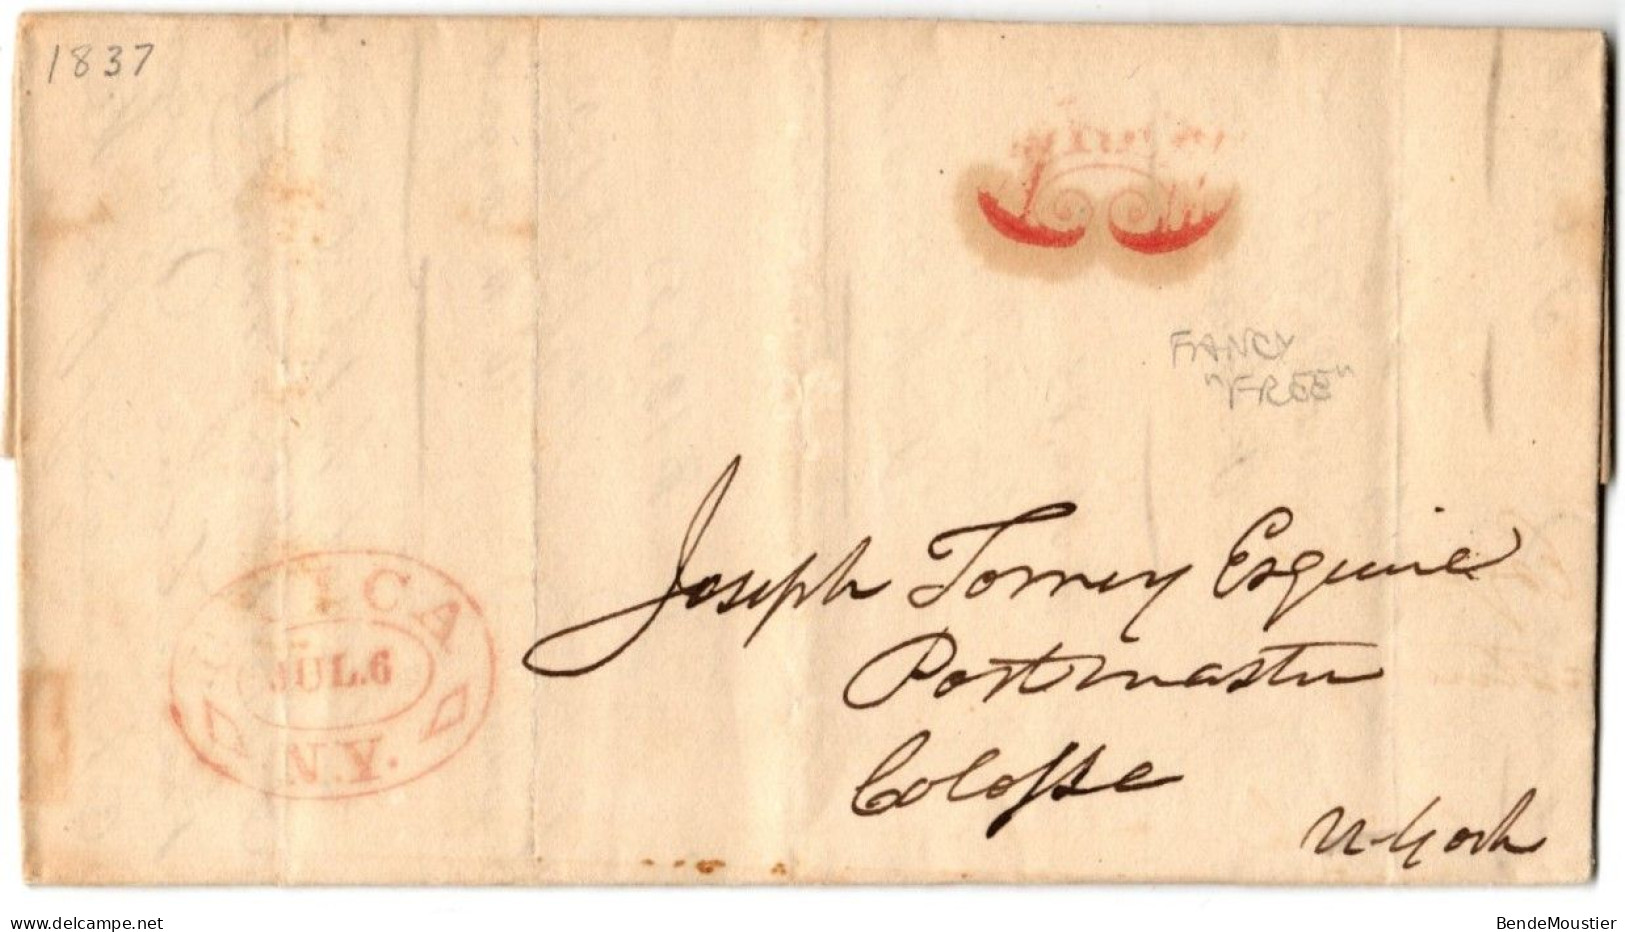 1837
FANCY
"FREE"
UTICA
JUL.6
N.Y.
Joseph Torrey Esquire
Postmaster
Colosse
N-York
www.delcampe.net
BendeMoustier